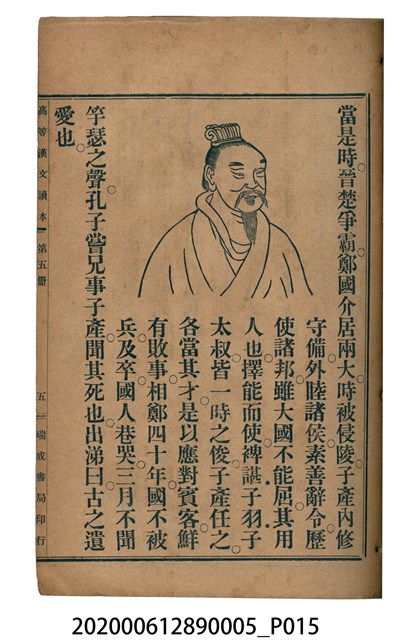 當是時。晉楚爭霸。鄭國介居兩大。時被侵陵。子產內修
守備。外睦諸侯。素善辭令。歷
使諸邦。雖大國不能屈。其用
人也。擇能而使。裨諶子羽子
太叔。皆一時之俊。子產任之。
各當其才。是以應對賓客。鮮
有敗事。相鄭四十年。國不被
兵。及卒。國人巷哭。三月不聞
竽瑟之聲。孔子嘗兄事子產。聞其死也。出涕曰。古之遺
愛也。
高等漢文讀本 第五册 五 瑞成書局印行
202000612890005_P015